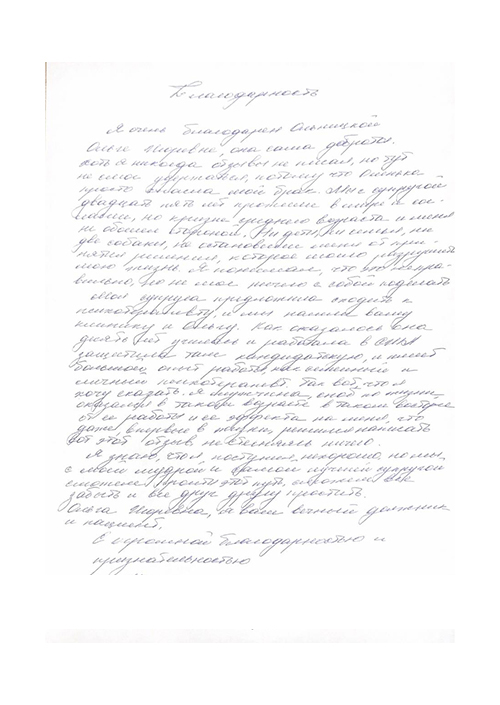 Благодарность
Я очень благодарен Ольницкой
Ольге Игоревне, она сама доброта.
Хоть я никогда отзывы не писал, но тут
не смог удержаться, потому что Оленька
просто спасла мой брак. Мы с супругой
двадцать пять лет прожили в мире и со-
гласии, но кризис среднего возраста и меня
не обошел стороной. Ни дети, ни семья, ни
две собаки, не остановили меня от при-
нятия решения, которое могло разрушить
мою жизнь. Я понимал, что это непра-
вильно, но не мог ничего с собой поделать
Моя супруга предложила сходить к
психотерапевту и мы нашли вашу
клинику и Ольгу. Как оказалось она
девять лет училась и работала в США
защитила там кандидатскую, и имеет
большой опыт работы как семейный и
личный психотерапевт. Так вот, что я
хочу сказать. Я мужчина,
оказался в таком возрасте в таком восторге
от ее работы и ее эффекта на меня, что
даже впервые в жизни, решился написать
вот этот отзыв не стесняясь ничего.
Я знаю, что я поступил нехорошо, но мы,
с моей мудрой и самой лучшей супругой
смогли пройти этот путь, и все
забыть и все друг другу простить.
Ольга Игоревна, я ваш вечный должник
и пациент.
С огромной благодарностью и
признательностью